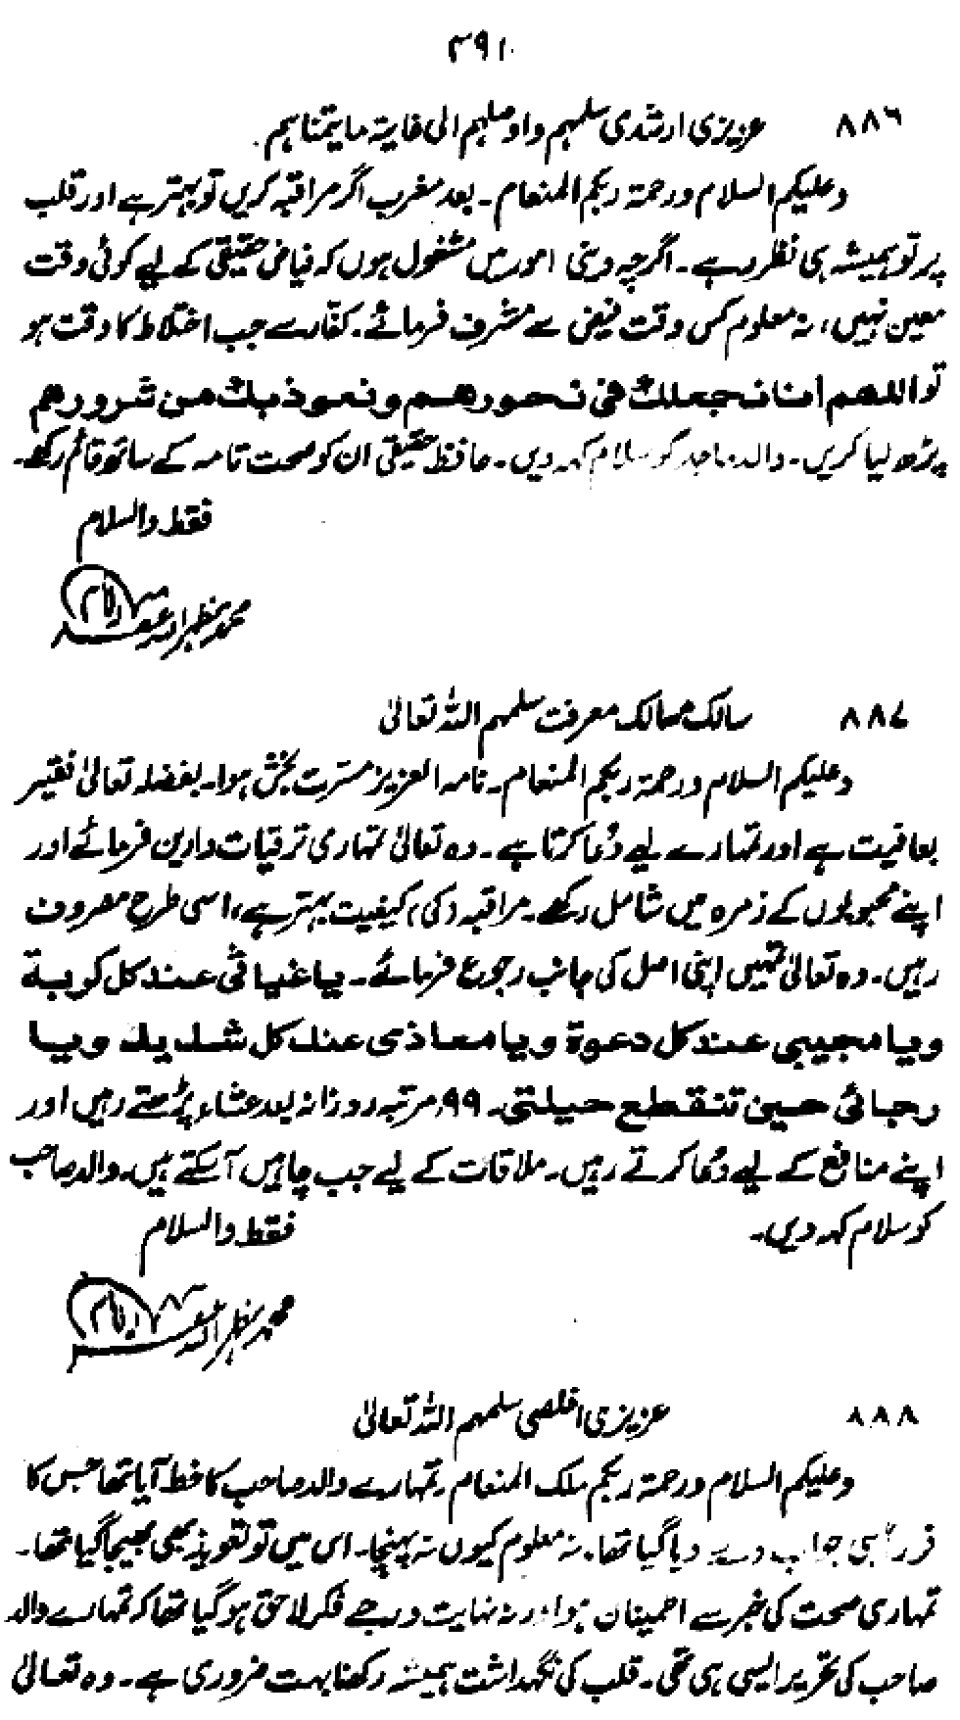 ۳۹۱
۸۸۶ عزیزی ارشدی سلمہم واوصلہم الی غایۃ مایتمناہم۔
وعلیکم السلام ورحمۃ ربکم المنعام۔ بعد مغرب اگر مراقبہ کریں تو بہتر ہے اور قلب
پر تو ہمیشہ ہی نظر رہے۔ اگرچہ دینی امور میں مشغول ہوں کہ فیاض حقیقی کے لیے کوئی وقت
معین نہیں، نہ معلوم کس وقت فیض سے مشرف فرمائے۔ کفار سے جب اختلاط کا وقت ہو
تو اللھم انا نجعلک فی نحورھم و نعوذ بک من شرورھم
پڑھ لیا کریں۔ والد ماجد کو سلام کہہ دیں۔ حافظ حقیقی ان کو صحت تامہ کے ساتھ قائم رکھے۔
فقط والسلام
محمد مظہر اللہ
۸۸۷ سالک مسالک معرفت سلمہم اللہ تعالیٰ
وعلیکم السلام ورحمۃ ربکم المنعام۔ نامہ العزیز مسرت بخش ہوا۔ بفضلہ تعالیٰ فقیر
بعافیت ہے اور تمہارے لیے دُعا کرتا ہے۔ وہ تعالیٰ تمہاری ترقیات دارین فرمائے اور
اپنے محبوبوں کے زمرہ میں شامل رکھے۔ مراقبہ (کی) کیفیت بہتر ہے، اسی طرح مصروف
رہیں۔ وہ تعالیٰ تمہیں اپنی اصل کی جانب رجوع فرمائے۔ یا غیاثی عند کل کربۃ
ویا مجیبی عند کل دعوۃ ویا معاذی عند کل شدید ویا
رجائی حین تنقطع حیلتی۔ ۹۹ مرتبہ روزانہ بعد عشاء پڑھتے رہیں اور
اپنے منافع کے لیے دُعا کرتے رہیں۔ ملاقات کے لیے جب چاہیں آسکتے ہیں۔ والد صاحب
کو سلام کہہ دیں۔ فقط والسلام
محمد مظہر اللہ
۸۸۸ عزیزی اخلصی سلمہم اللہ تعالیٰ
وعلیکم السلام ورحمۃ ربکم ملک المنعام۔ تمہارے والد صاحب کا خط آیا تھا جس کا
فوراً ہی جواب دے دیا گیا تھا۔ نہ معلوم کیوں نہ پہنچا۔ اس میں تو تعویذ بھی بھیجا گیا تھا۔
تمہاری صحت کی خبر سے اطمینان ہوا ورنہ نہایت درجے فکر لاحق ہو گیا تھا کہ تمہارے والد
صاحب کی تحریر ایسی ہی تھی۔ قلب کی نگہداشت ہمیشہ رکھنا بہت ضروری ہے۔ وہ تعالیٰ